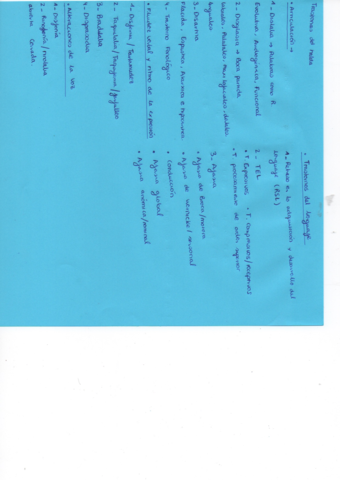 Trastornos del habla
• Articulación →
1. Dislalia → Rotacismo fonema R
Evolutiva, Audiógenas, Funcional
2. Disglosia → Boca, paladar
labiales, Palatales, Mandibulares, dentales
linguales
3. Disartria
Flácida, Espástica, Atáxica e Hipercinética
4. Trastorno Fonológico
• Fluidez verbal y ritmo de la expresión
1. Disfemia / Tartamudez
2. Taquilalia / Taquifemia / farfulleo
3. Bradilalia
4. Disprosodia
• Alteraciones de la voz
1. Disfonía
2. Rinofonía / rinolalia
abierta cerrada
• Trastornos del lenguaje
1. Retraso en la adquisición y desarrollo del
lenguaje (RSL)
2. TEL
• T Expresivos • T comprensivos/receptivos
• T procesamiento de orden superior
3. Afasia
• Afasia de Broca/motora
• Afasia de Wernicke/sensorial
• Conducción
• Afasia global
• Afasia anómica/nominal